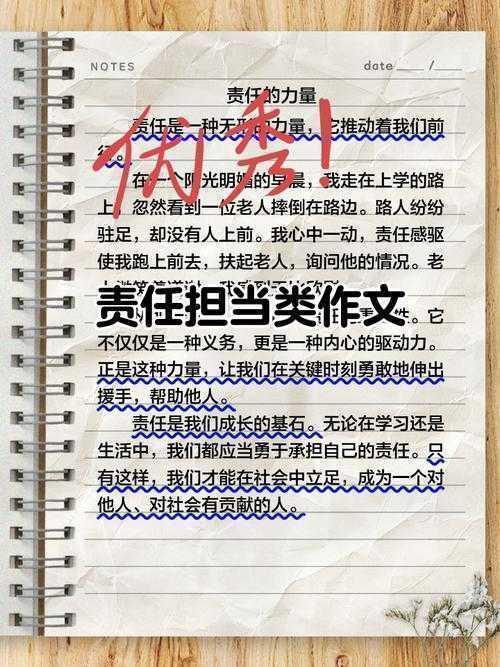 NOTES
date ___ / ___
责任的力量
责任是一种无形的力量，它推动着我们前
行。
优秀!
在一个阳光明媚的早晨，我走在上学的路
上，忽然看到一位老人摔倒在路边。路人纷纷
驻足，却没有人上前。我心中一动，责任感驱
使我跑上前去，扶起老人，询问他的情况。老
责任担当类作文
性。它
不仅仅是一种义务，更是一种内心的驱动力。
正是这种力量，让我们在关键时刻勇敢地伸出
援手，帮助他人。
责任是我们成长的基石。无论在学习还是
生活中，我们都应当勇于承担自己的责任。只
有这样，我们才能在社会中立足，成为一个对
他人、对社会有贡献的人。